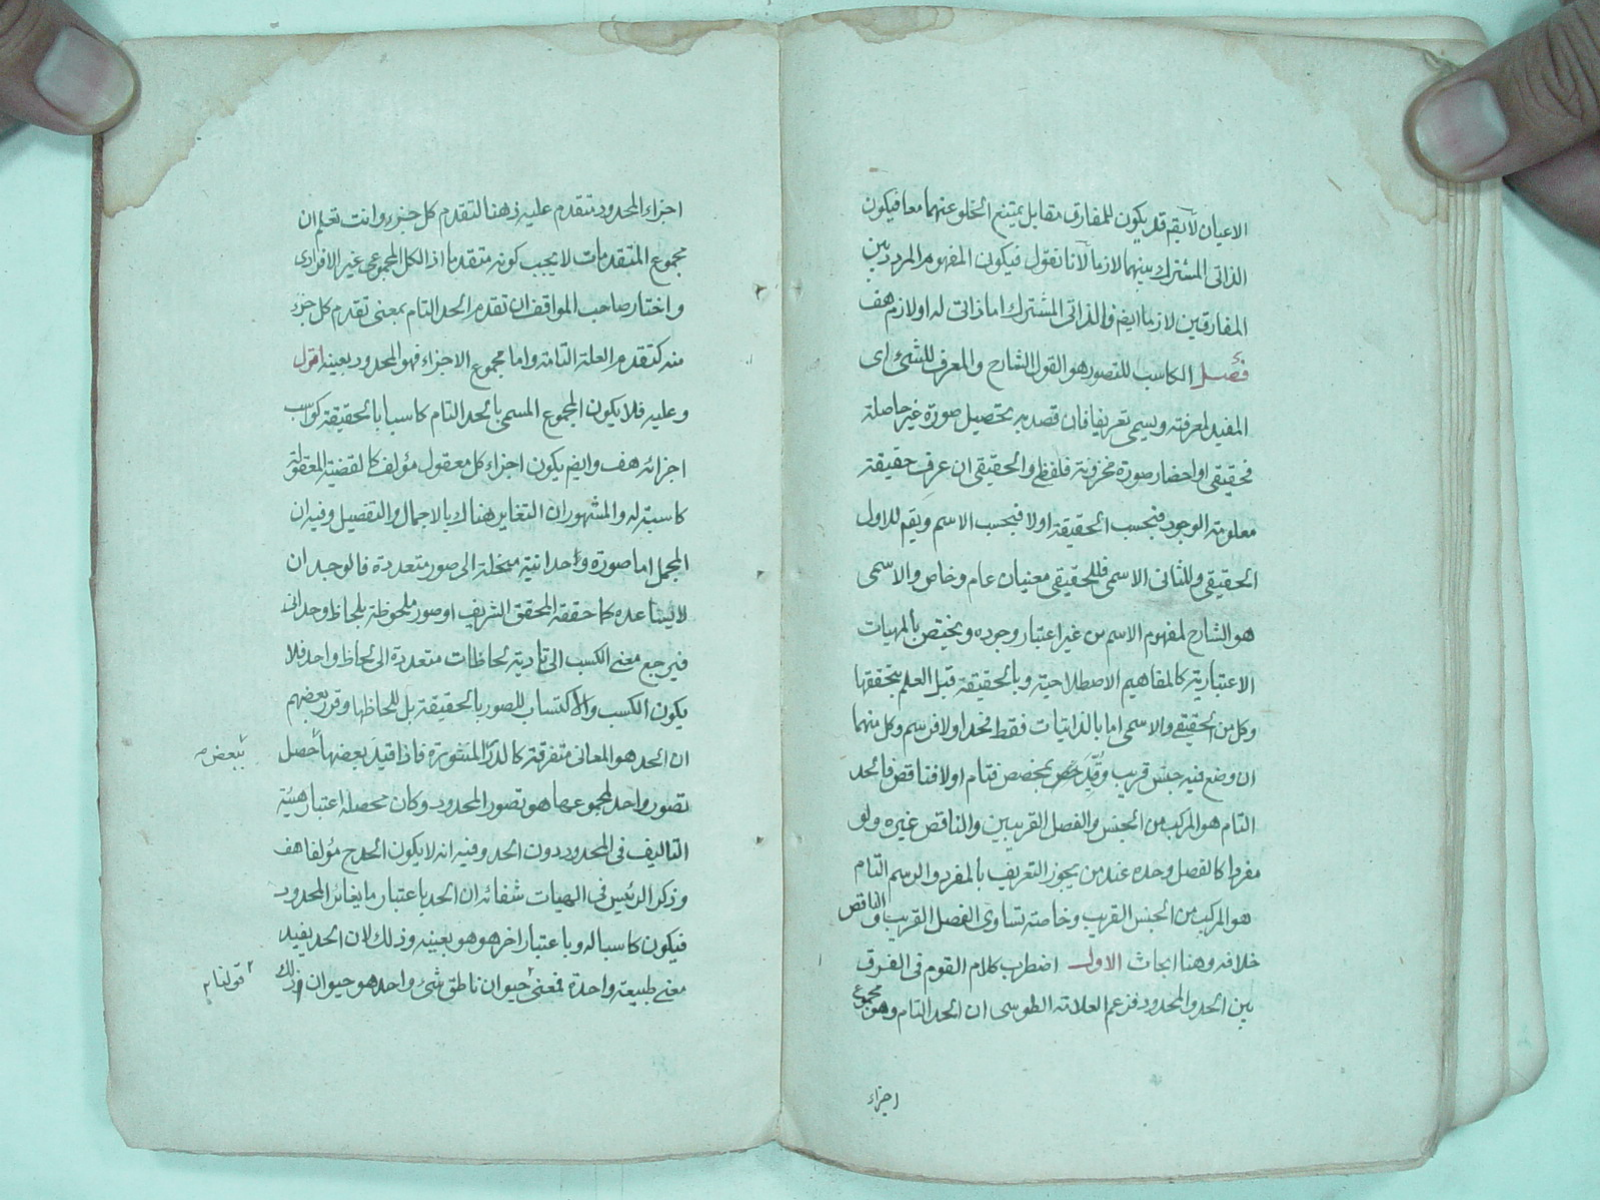 الاعيان لايقم قد يكون للمفارق مقابل يمتنع الخلو عنهما معا فيكون
الذاتى المشترك بينهما لازما لانا نقول فيكون المفهوم المردد بين
المفارقين لازما ايضم والذاتى المشترك اما ذاتى له او لازم هف
فصل الكاسب للتصور هو القول الشارح والمعرف للشئ اى
المفيد لمعرفته ويسمى تعريفا فان قصد به تحصيل صورة غير حاصلة
فحقيقى او احضار صورة مخزونة فلفظى والحقيقى ان عرف حقيقة
معلومة الوجود فبحسب الحقيقة اولا فبحسب الاسم ويقم للاول
الحقيقى وللثانى الاسمى فللحقيقى معنيان عام وخاص والاسمى
هو الشارح لمفهوم الاسم من غير اعتبار وجوده ويختص بالمهيات
الاعتبارية كالمفاهيم الاصطلاحية وبالحقيقة قبل العلم بتحققها
وكل من الحقيقى والاسمى اما بالذاتيات فقط فحد اولا فرسم وكل منهما
ان وضع فيه جنس قريب وقيد خص بمخصص فتام اولا فناقص فالحد
التام هو المركب من الجنس والفصل القريبين والناقص غيره ولو
مفردا كالفصل وحده عند من يجوز التعريف بالمفرد والرسم التام
هو المركب من الجنس القريب وخاصة تساوى الفصل القريب والناقص
خلافه وهنا ابحاث الاول اضطرب كلام القوم فى الفرق
بين الحد والمحدود فزعم العلامة الطوسى ان الحد التام وهو مجموع
اجزاء
اجزاء المحدود متقدم عليه ذهنا لتقدم كل جزء وانت تعلم ان
مجموع المتقدمات لا يجب كونه متقدما اذ الكل المجموعى غير الافرادى
واختار صاحب المواقف ان تقدم الحد التام بمعنى تقدم كل جزء
منه كتقدم العلة التامة واما مجموع الاجزاء فهو المحدود بعينه اقول
وعليه فلا يكون المجموع المسمى بالحد التام كاسبا بالحقيقة كواسب
اجزائه هف وايضم يكون اجزاء كل معقول مؤلف كالقضية المعقولة
كاسبة له والمشهور ان التغاير هناك بالاجمال والتفصيل وفيه ان
المجمل اما صورة واحدانية منحلة الى صور متعددة فالوجدان
لا يساعده كما حققه المحقق الشريف او صور ملحوظة بلحاظ وحدانى
فيرجع معنى الكسب الى تادية لحاظات متعددة الى لحاظ واحد فلا
يكون الكسب والاكتساب للصور بالحقيقة بل للحاظها وقرر بعضهم
ان الحد هو المعانى متفرقة كالدرر المنثورة فاذا قيد بعضها حصل
ببعض
تصور واحد لمجموعها هو تصور المحدود وكان محصله اعتبار هيئة
التاليف فى المحدود دون الحد وفيه انه لا يكون الحد ح مؤلفا هف
وذكر الرئيس فى الهيات شفائه ان الحد باعتبار ما يغاير المحدود
فيكون كاسبا له وباعتبار اخر هو هو بعينه وذلك لان الحد يفيد
معنى طبيعة واحدة فمعنى حيوان ناطق شئ واحد هو حيوان ذلك
قولنا